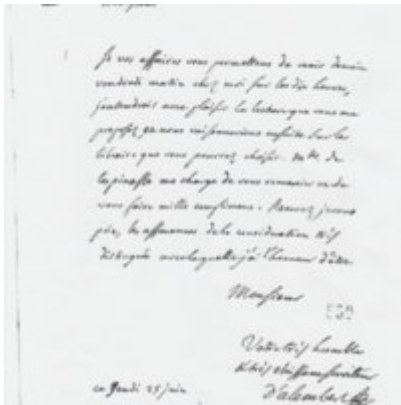 Si vos affaires vous permettent de venir demain
vendredi matin chez moi sur les dix heures,
j'entendrois avec plaisir la lecture que vous me
proposez, & nous raisonnerions ensuite sur les
libraire que vous pouvez choisir. Mlle. de
lespinasse me charge de vous remercier & de
vous faire mille complimens. Recevez, je vous
prie, les assurances de la consideration très
distinguée avec laquelle j'ai l'honneur d'être
Monsieur
Votre très humble
& très obeissant serviteur
D'alembert
ce Jeudi 25 juin